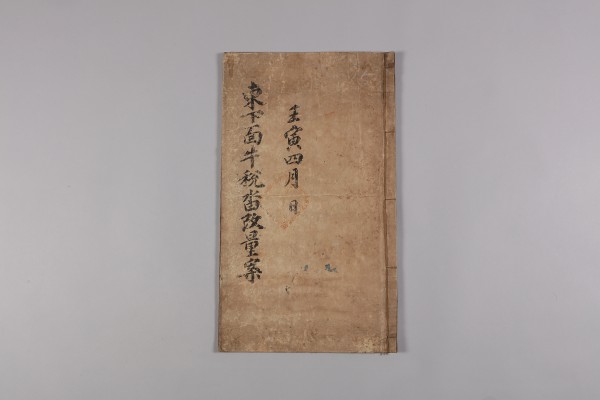 壬寅四月 日
東下面牛稅畓改量案